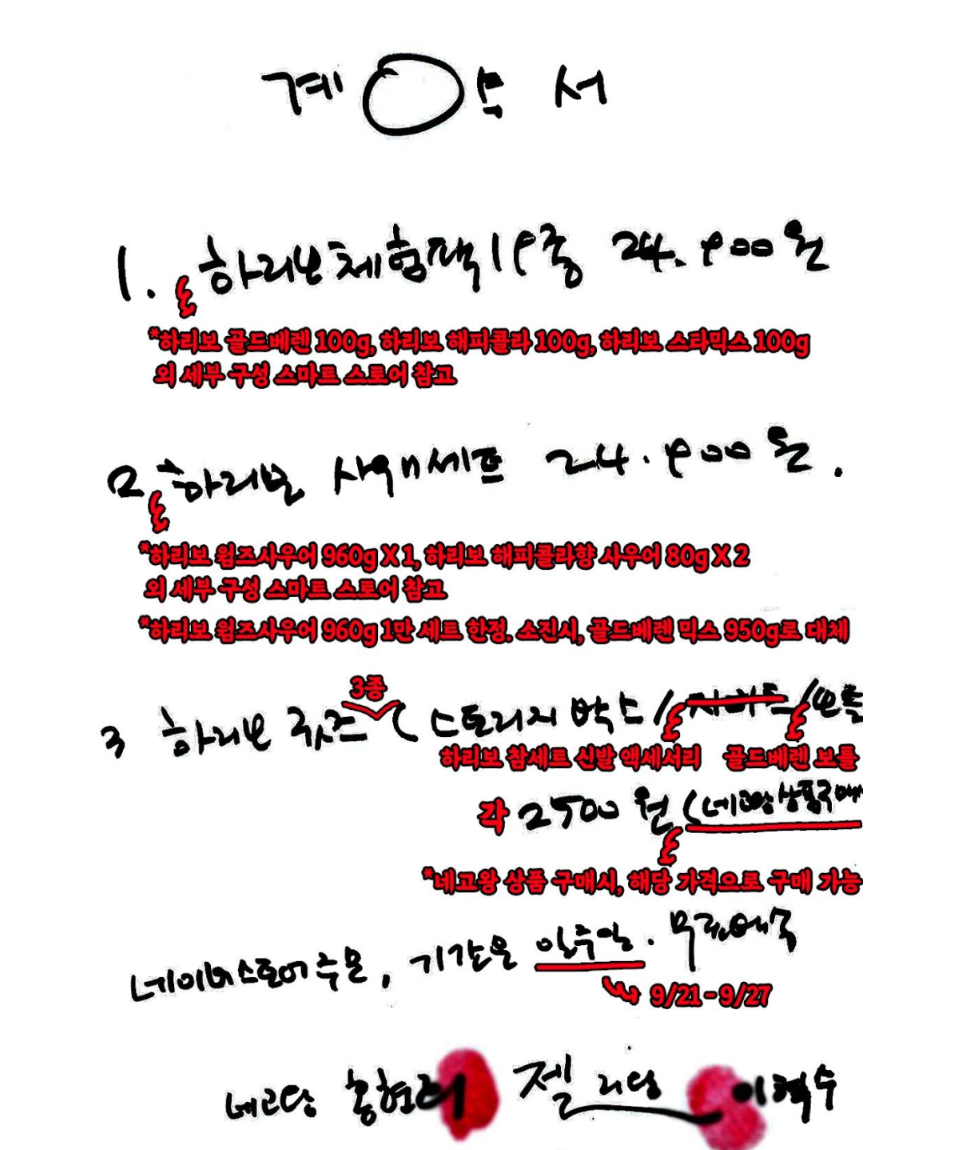 계약서
1. 하리보체험팩 19종 24.900원
*하리보 골드베렌 100g, 하리보 해피콜라 100g, 하리보 스타믹스 100g
외 세부 구성 스마트 스토어 참고
2. 하리보 사워세트 24.900원.
*하리보 웜즈사우어 960g X 1, 하리보 해피콜라향 사우어 80g X 2
외 세부 구성 스마트 스토어 참고
*하리보 웜즈사우어 960g 1만 세트 한정. 소진시, 골드베렌 믹스 950g로 대체
3종
3 하리보 굿즈 ( 스토리지 박스 / / 보틀
하리보 참세트 신발 액세서리 골드베렌 보틀
각 2500원 (네고왕상품구매
*네고왕 상품 구매시, 해당 가격으로 구매 가능
네이버스토어주문, 기간은 일주일. 무료배송
9/21-9/27
네고왕 홍현희 젤리왕 이혁수